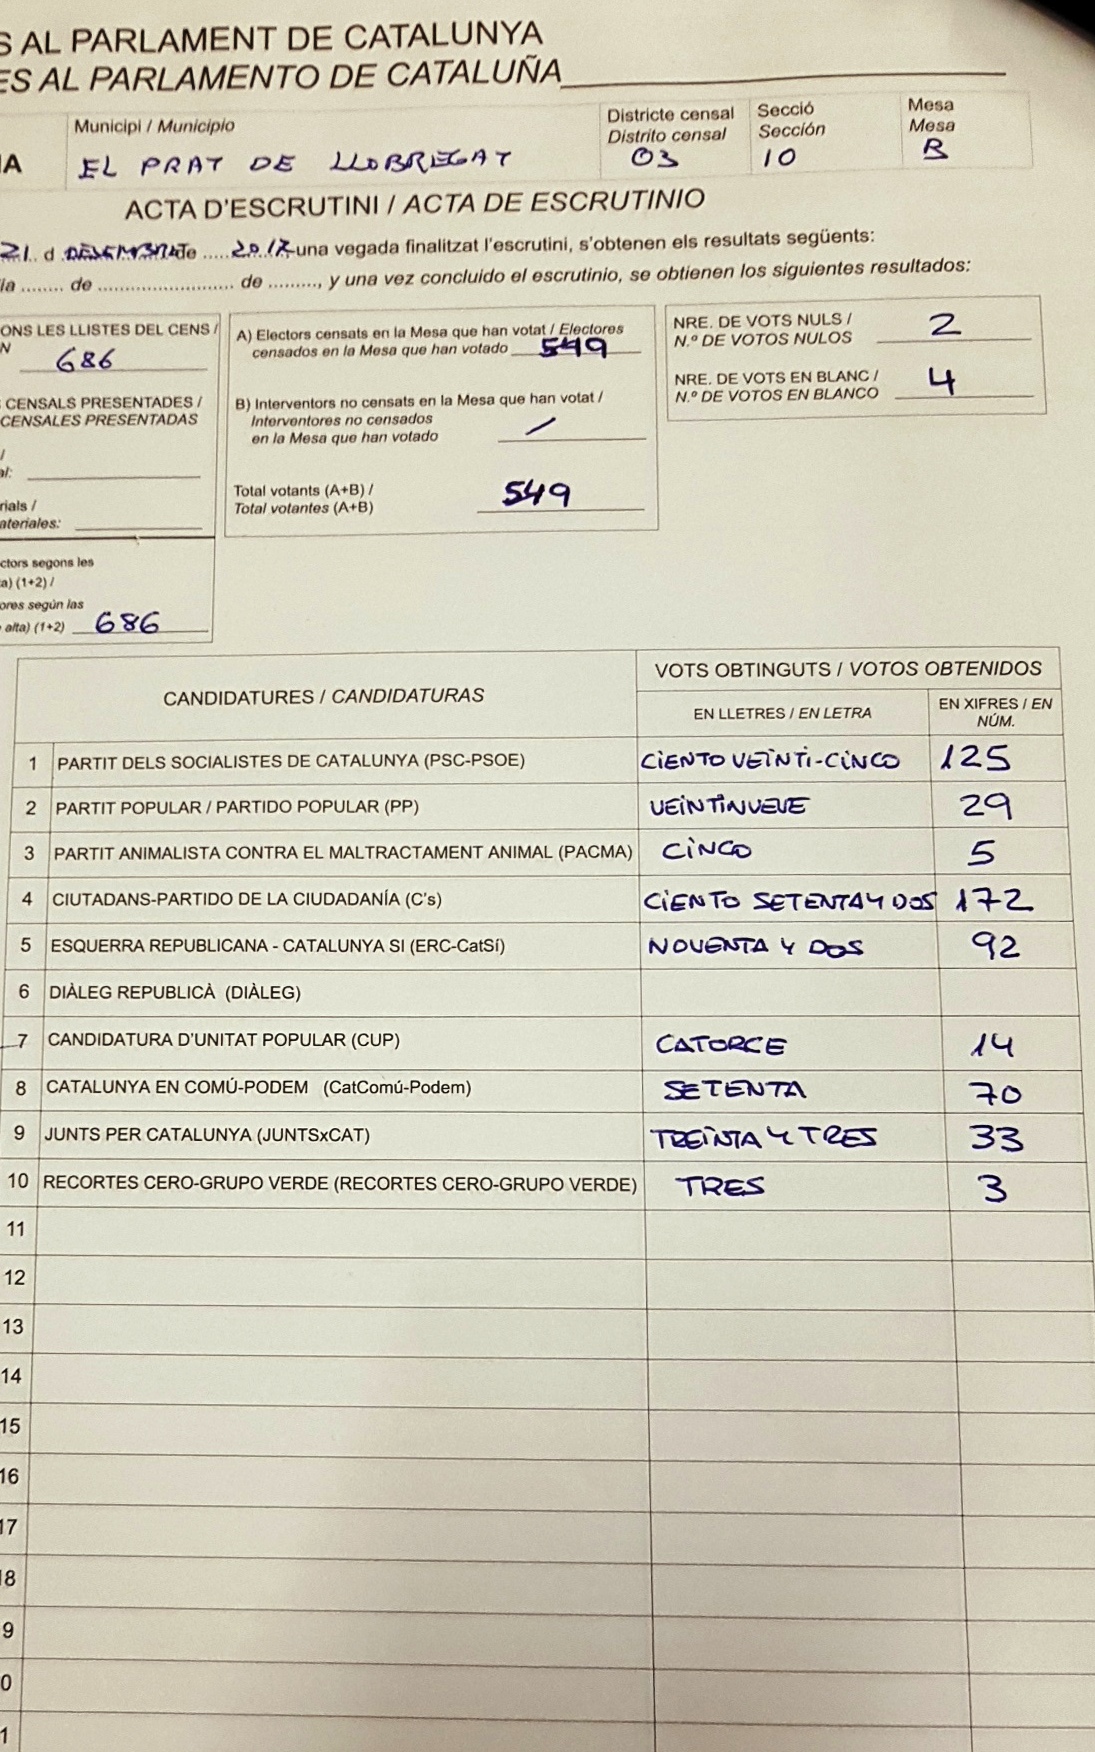 S AL PARLAMENT DE CATALUNYA
ES AL PARLAMENTO DE CATALUÑA
Municipi / Municipio
Districte censal
Distrito censal
Secció
Sección
Mesa
Mesa
IA EL PRAT DE LLOBREGAT 03 10 B
ACTA D'ESCRUTINI / ACTA DE ESCRUTINIO
21 d DESEMBRE de 2017 una vegada finalitzat l'escrutini, s'obtenen els resultats següents:
día ........ de .......................... de ........., y una vez concluido el escrutinio, se obtienen los siguientes resultados:
ONS LES LLISTES DEL CENS /
N 686
CENSALS PRESENTADES /
CENSALES PRESENTADAS
/
al:
rials /
ateriales:
ctors segons les
a) (1+2) /
ores según las
alta) (1+2) 686
A) Electors censats en la Mesa que han votat / Electores
censados en la Mesa que han votado 549
B) Interventors no censats en la Mesa que han votat /
Interventores no censados
en la Mesa que han votado /
Total votants (A+B) /
Total votantes (A+B) 549
NRE. DE VOTS NULS /
N.º DE VOTOS NULOS 2
NRE. DE VOTS EN BLANC /
N.º DE VOTOS EN BLANCO 4
CANDIDATURES / CANDIDATURAS
VOTS OBTINGUTS / VOTOS OBTENIDOS
EN LLETRES / EN LETRA
EN XIFRES / EN
NÚM.
1 PARTIT DELS SOCIALISTES DE CATALUNYA (PSC-PSOE) CIENTO VEINTI-CINCO 125
2 PARTIT POPULAR / PARTIDO POPULAR (PP) VEINTINUEVE 29
3 PARTIT ANIMALISTA CONTRA EL MALTRACTAMENT ANIMAL (PACMA) CINCO 5
4 CIUTADANS-PARTIDO DE LA CIUDADANÍA (C's) CIENTO SETENTA Y DOS 172
5 ESQUERRA REPUBLICANA - CATALUNYA SI (ERC-CatSí) NOVENTA Y DOS 92
6 DIÀLEG REPUBLICÀ (DIÀLEG)
7 CANDIDATURA D'UNITAT POPULAR (CUP) CATORCE 14
8 CATALUNYA EN COMÚ-PODEM (CatComú-Podem) SETENTA 70
9 JUNTS PER CATALUNYA (JUNTSxCAT) TREINTA Y TRES 33
10 RECORTES CERO-GRUPO VERDE (RECORTES CERO-GRUPO VERDE) TRES 3
11
12
13
14
15
16
17
18
9
0
1